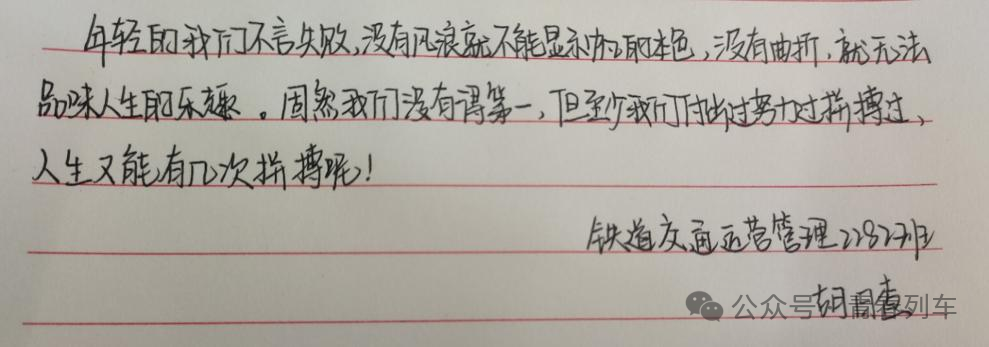 年轻的我们不言失败,没有风浪就不能显示帆的本色,没有曲折,就无法
品味人生的乐趣。固然我们没有得第一,但至少我们付出过努力过拼搏过、
人生又能有几次拼搏呢!
铁道交通运营管理2282班
胡
公众号 列车